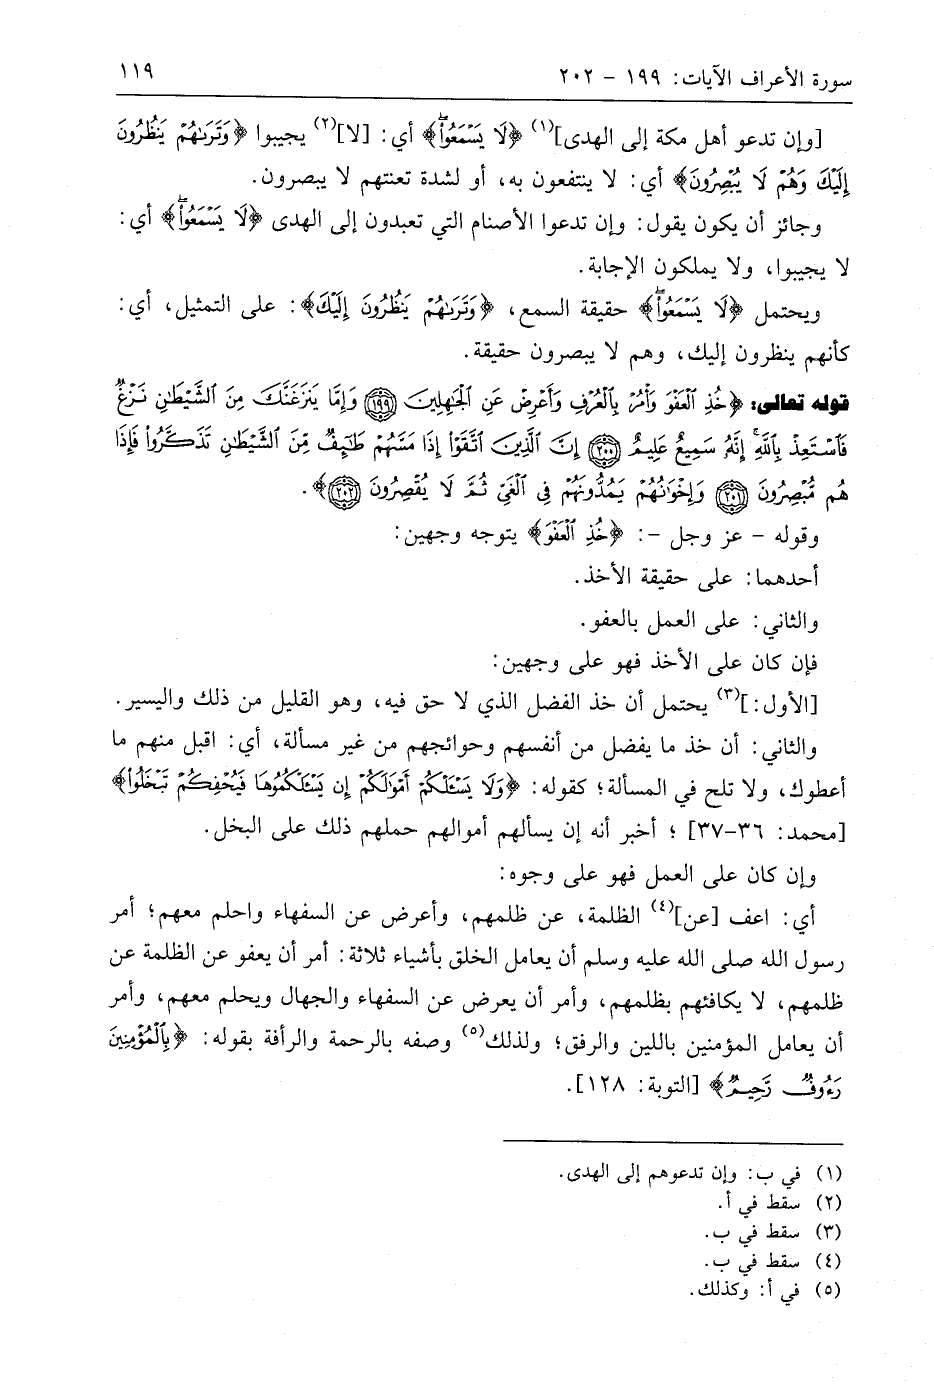 سورة الأعراف الآيات: ١٩٩ - ٢٠٢ ١١٩
[وإن تدعو أهل مكة إلى الهدى](١) ﴿لَا يَسْمَعُواْۖ﴾ أي: [لا](٢) يجيبوا ﴿وَتَرَىٰهُمْ يَنظُرُونَ
إِلَيْكَ وَهُمْ لَا يُبْصِرُونَ﴾ أي: لا ينتفعون به، أو لشدة تعنتهم لا يبصرون.
وجائز أن يكون يقول: وإن تدعوا الأصنام التي تعبدون إلى الهدى ﴿لَا يَسْمَعُواْۖ﴾ أي:
لا يجيبوا، ولا يملكون الإجابة.
ويحتمل ﴿لَا يَسْمَعُواْۖ﴾ حقيقة السمع، ﴿وَتَرَىٰهُمْ يَنظُرُونَ إِلَيْكَ﴾: على التمثيل، أي:
كأنهم ينظرون إليك، وهم لا يبصرون حقيقة.
قوله تعالى: ﴿خُذِ ٱلْعَفْوَ وَأْمُرْ بِٱلْعُرْفِ وَأَعْرِضْ عَنِ ٱلْجَٰهِلِينَ ١٩٩ وَإِمَّا يَنزَغَنَّكَ مِنَ ٱلشَّيْطَٰنِ نَزْغٌ
فَٱسْتَعِذْ بِٱللَّهِۚ إِنَّهُۥ سَمِيعٌ عَلِيمٌ ٢٠٠ إِنَّ ٱلَّذِينَ ٱتَّقَوْاْ إِذَا مَسَّهُمْ طَٰٓئِفٌ مِّنَ ٱلشَّيْطَٰنِ تَذَكَّرُواْ فَإِذَا
هُم مُّبْصِرُونَ ٢٠١ وَإِخْوَٰنُهُمْ يَمُدُّونَهُمْ فِى ٱلْغَىِّ ثُمَّ لَا يُقْصِرُونَ ٢٠٢﴾.
وقوله - عز وجل -: ﴿خُذِ ٱلْعَفْوَ﴾ يتوجه وجهين:
أحدهما: على حقيقة الأخذ.
والثاني: على العمل بالعفو.
فإن كان على الأخذ فهو على وجهين:
[الأول:](٣) يحتمل أن خذ الفضل الذي لا حق فيه، وهو القليل من ذلك واليسير.
والثاني: أن خذ ما يفضل من أنفسهم وحوائجهم من غير مسألة، أي: اقبل منهم ما
أعطوك، ولا تلح في المسألة؛ كقوله: ﴿وَلَا يَسْـَٔلْكُمْ أَمْوَٰلَكُمْ إِن يَسْـَٔلْكُمُوهَا فَيُحْفِكُمْ تَبْخَلُواْ﴾
[محمد: ٣٦-٣٧] ؛ أخبر أنه إن يسألهم أموالهم حملهم ذلك على البخل.
وإن كان على العمل فهو على وجوه:
أي: اعف [عن](٤) الظلمة، عن ظلمهم، وأعرض عن السفهاء واحلم معهم؛ أمر
رسول الله صلى الله عليه وسلم أن يعامل الخلق بأشياء ثلاثة: أمر أن يعفو عن الظلمة عن
ظلمهم، لا يكافئهم بظلمهم، وأمر أن يعرض عن السفهاء والجهال ويحلم معهم، وأمر
أن يعامل المؤمنين باللين والرفق؛ ولذلك(٥) وصفه بالرحمة والرأفة بقوله: ﴿بِٱلْمُؤْمِنِينَ
رَءُوفٌ رَّحِيمٌ﴾ [التوبة: ١٢٨].
(١) في ب: وإن تدعوهم إلى الهدى.
(٢) سقط في أ.
(٣) سقط في ب.
(٤) سقط في ب.
(٥) في أ: وكذلك.